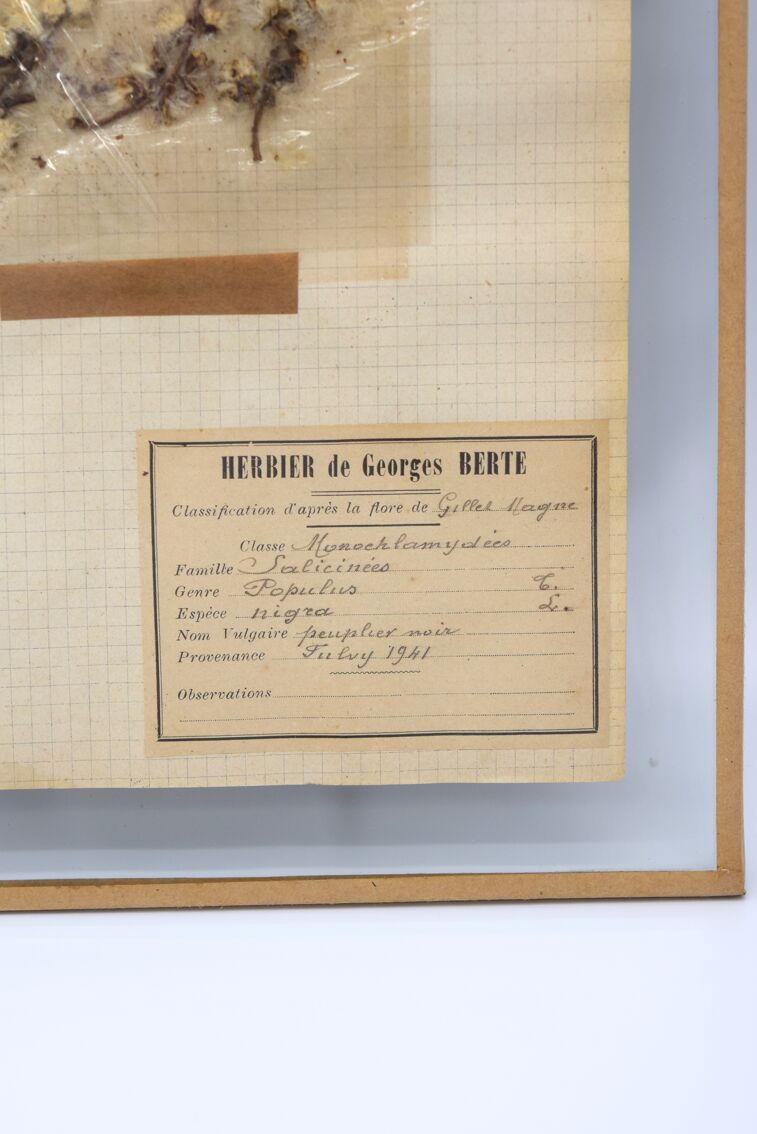 HERBIER de Georges BERTE
Classification d'après la flore de Gillet Magne
Classe Monochlamydées
Famille Salicinées
Genre Populus T.
Espéce nigra L.
Nom Vulgaire peuplier noir
Provenance Fulvy 1941
Observations